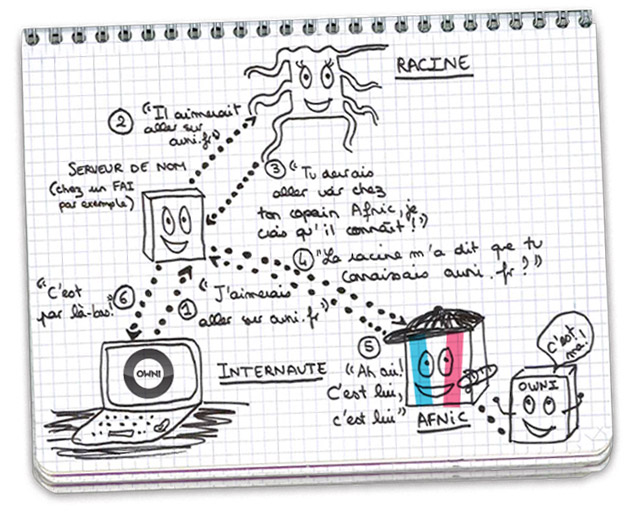 RACINE
② "Il aimerait
aller sur
owni.fr"
SERVEUR DE NOM
(chez un FAI
par exemple)
③ "Tu devrais
aller voir chez
ton copain Afnic, je
crois qu'il connaît !"
④ "La racine m'a dit que tu
connaissais owni.fr ?"
⑥ "C'est
par là-bas!"
① "J'aimerais
aller sur owni.fr"
OWNI
INTERNAUTE
⑤
"Ah oui!
C'est lui,
c'est lui"
AFNIC
C'est
moi!
OWNI